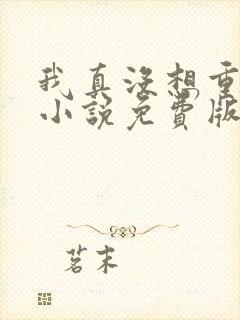 我真没想重
小说免费版
茗末